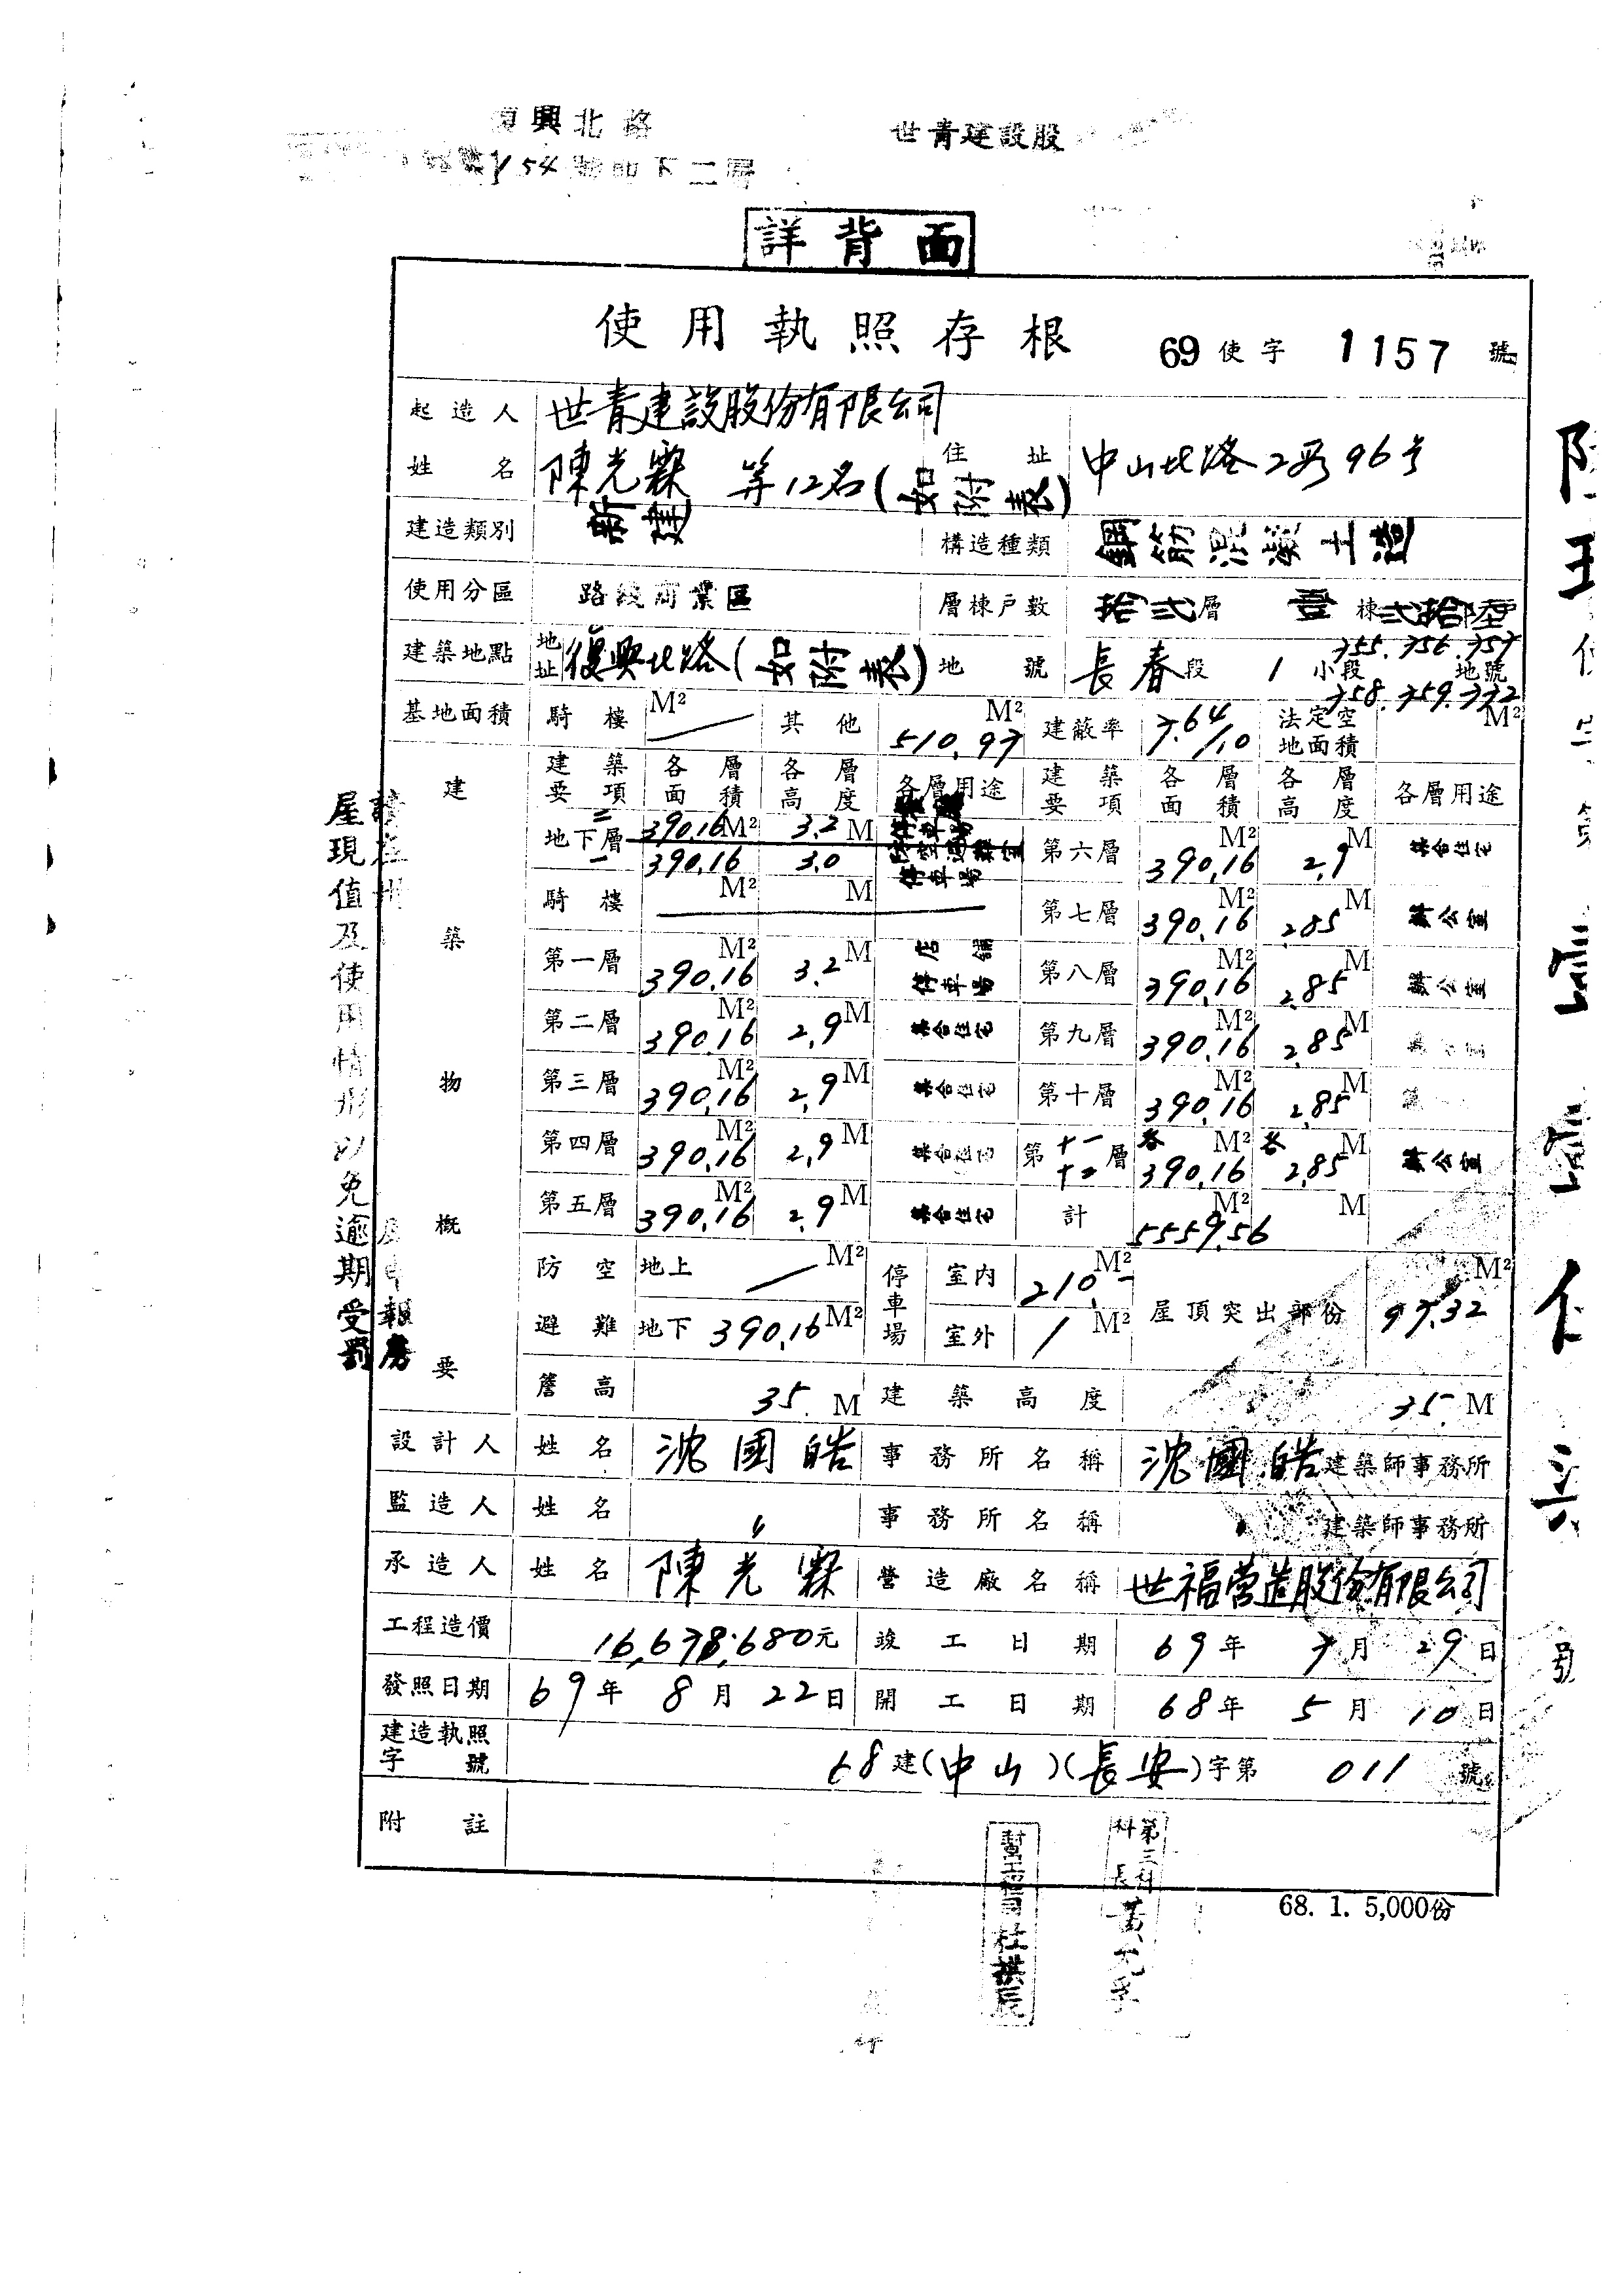 興北路
世青建設股
54
下二層
詳背面
使用執照存根 69使字 1157 號
起造人姓名 世青建設股份有限公司
陳光霖 等12名(如附表) 住址 中山北路2段96号
建造類別 新建 構造種類 鋼筋混凝土造
使用分區 路線商業區 層棟戶數 拾弍層 壹棟 弍拾陸戶
建築地點 地址 復興北路(如附表) 地號 長春段 1小段 755.756.757 758.759.772 地號
基地面積 騎樓 M² 其他 510.97 M² 建蔽率 7.64/10 法定空地面積 M²
建築物概要
建築要項 各層面積 各層高度 各層用途 建築要項 各層面積 各層高度 各層用途
地下層 二 390.16 M² 3.2 M
一 390.16 3.0 停車場 第六層 390.16 M² 2.9 M 集合住宅
騎樓 M² M 第七層 390.16 M² 2.85 M 辦公室
第一層 390.16 M² 3.2 M 店舖 停車場 第八層 390.16 M² 2.85 M 辦公室
第二層 390.16 M² 2.9 M 集合住宅 第九層 390.16 M² 2.85 M
第三層 390.16 M² 2.9 M 集合住宅 第十層 390.16 M² 2.85 M
第四層 390.16 M² 2.9 M 集合住宅 第十一十二層 各 390.16 M² 各 2.85 M 辦公室
第五層 390.16 M² 2.9 M 集合住宅 計 5559.56 M² M
防空避難 地上 M² 停車場 室內 210.- M² 屋頂突出部份 97.32 M²
地下 390.16 M² 室外 / M²
簷高 35. M 建築高度 35. M
設計人 姓名 沈國皓 事務所名稱 沈國皓建築師事務所
監造人 姓名 〃 事務所名稱 建築師事務所
承造人 姓名 陳光霖 營造廠名稱 世福營造股份有限公司
工程造價 16,678,680元 竣工日期 69年 7月 29日
發照日期 69年 8月 22日 開工日期 68年 5月 10日
建造執照字號 68建(中山)(長安)字第 011 號
附註
68. 1. 5,000份
第三科科長黃
杜祺辰
屋現值及使用情形以免逾期受罰
報房
號